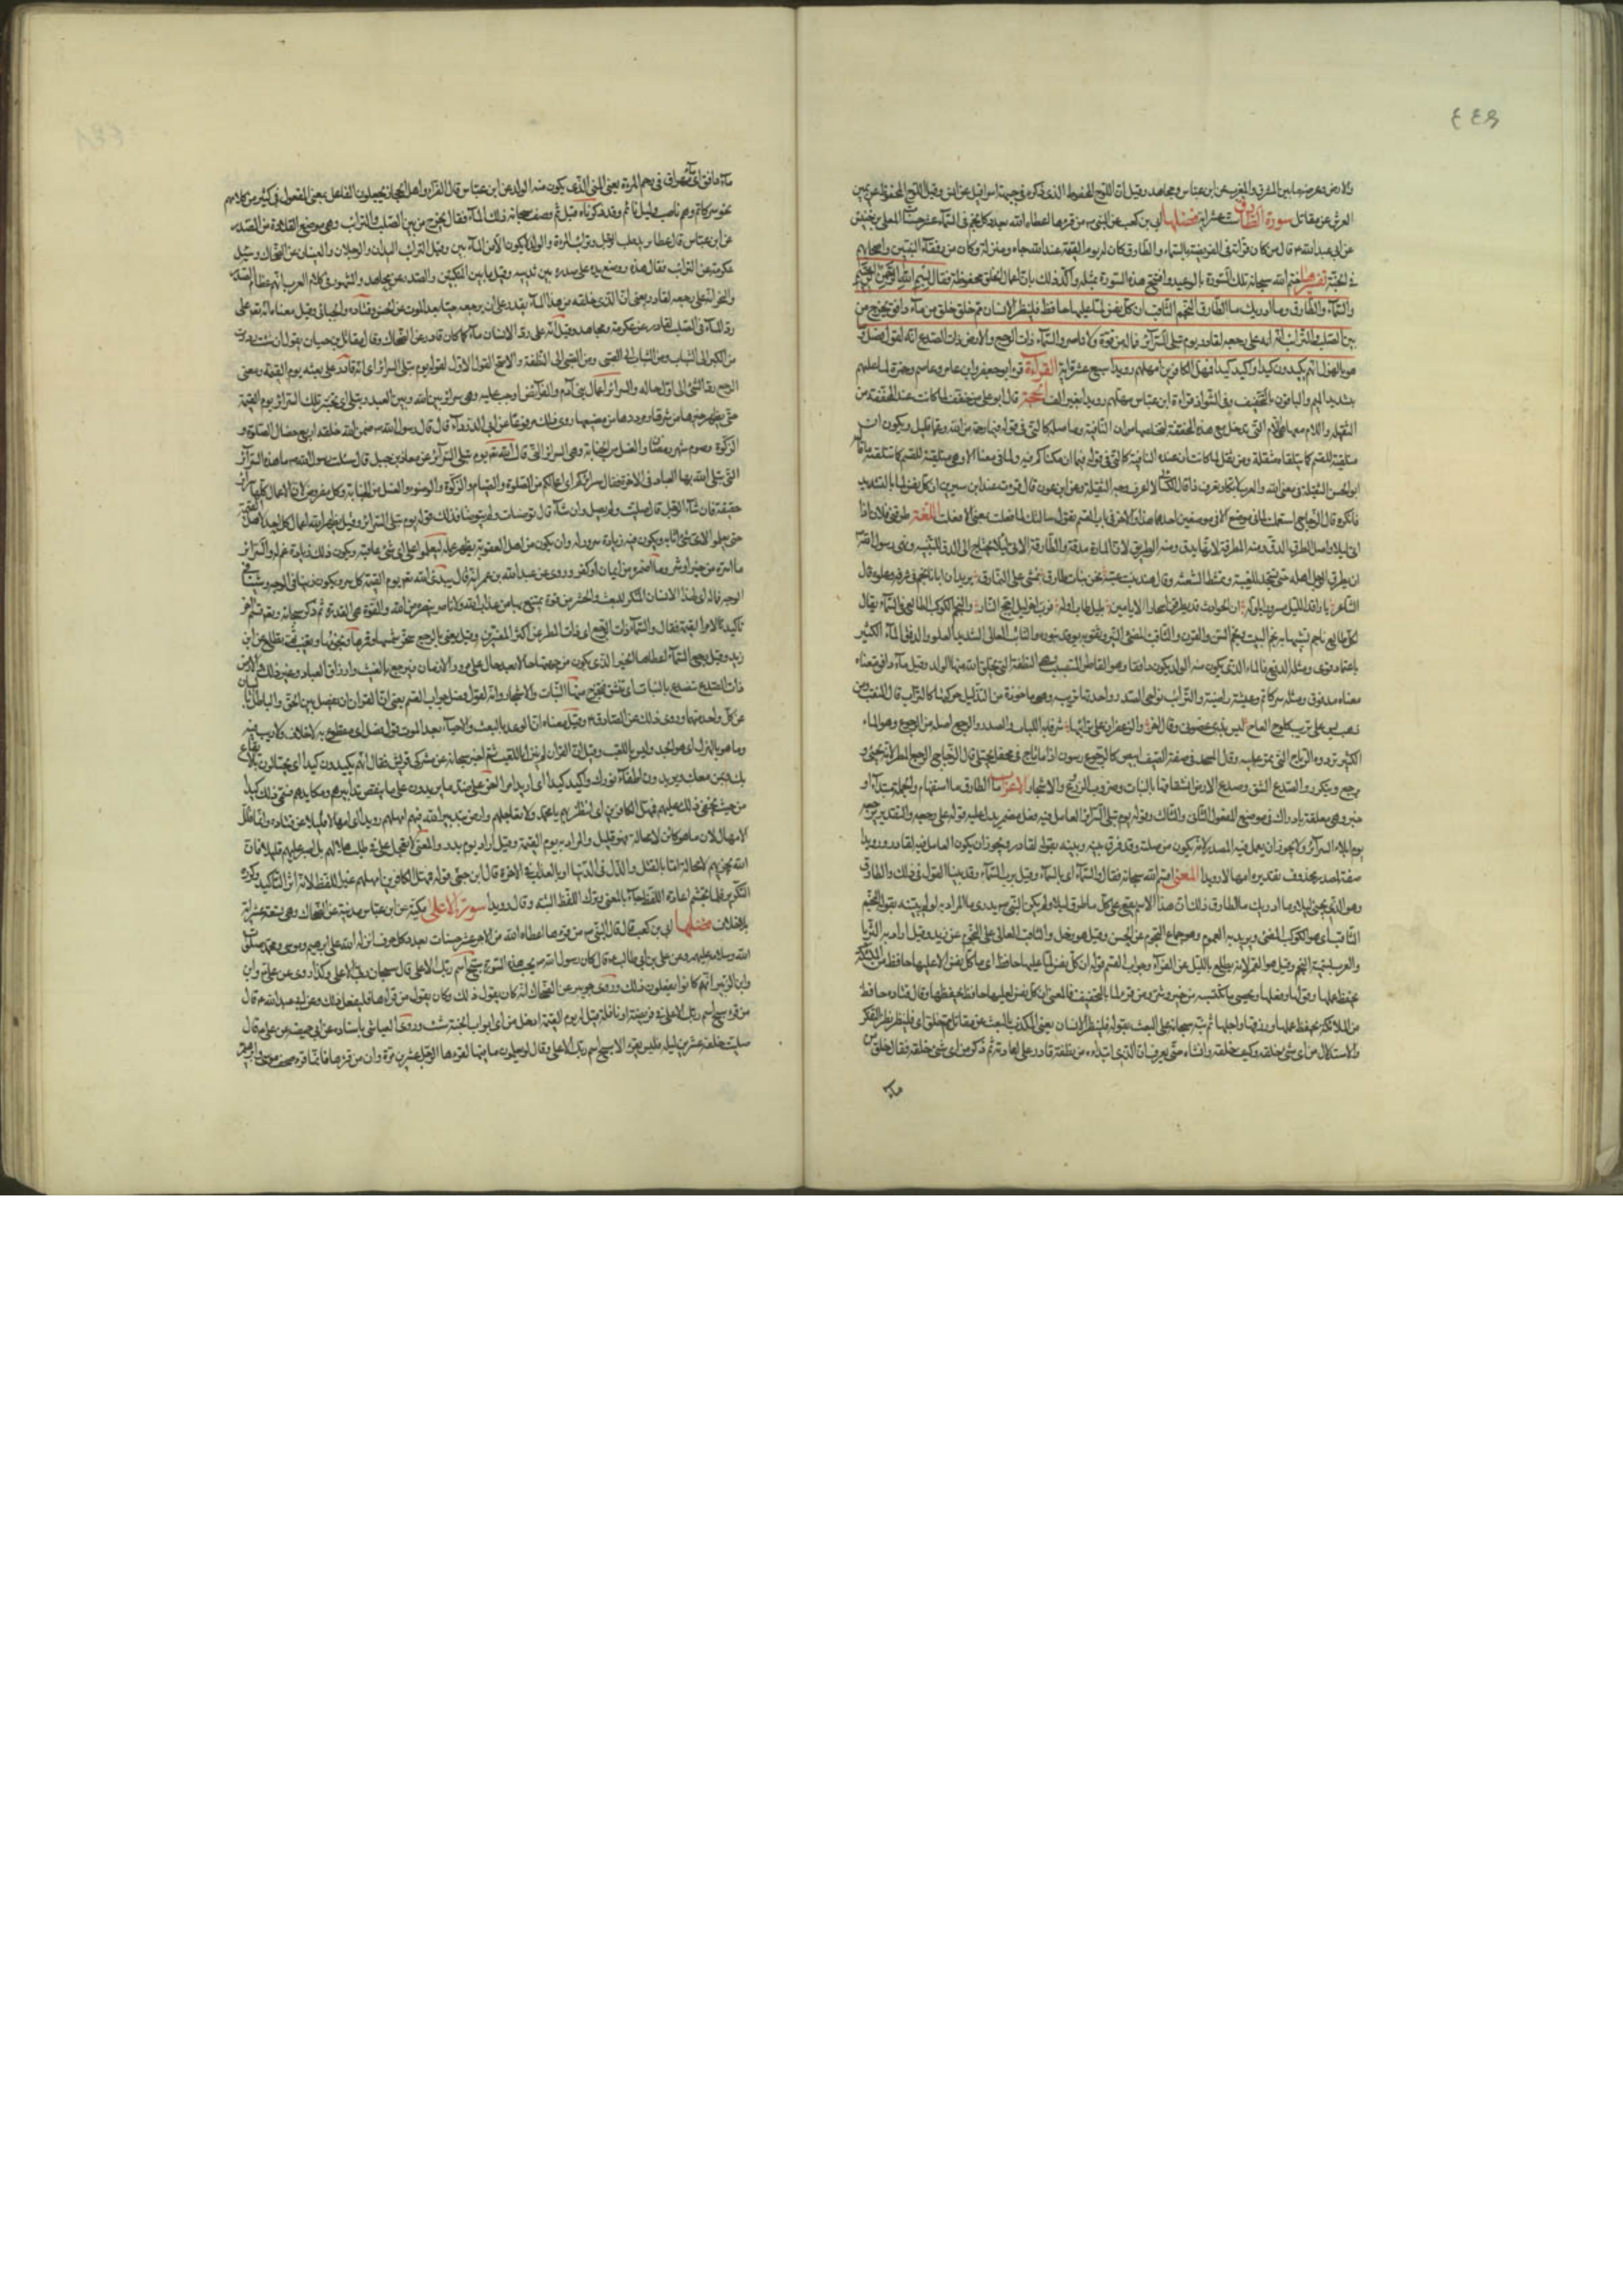 ٤٤٩
والارض وعرضه ما بين المشرق والمغرب عن ابن عباس ومجاهد وقيل ان اللوح المحفوظ الذي ذكره في جبهة اسرافيل عن انس وقيل اللوح المحفوظ عن يمين
العرش عن مقاتل سورة الطارق ست عشرة اية فضلها ابي بن كعب عن النبي ص من قرأها اعطاه الله بعدد كل نجم في السماء عشر حسنات المعلى بن خنيس
عن ابي عبد الله ع قال من كان قراءته في الفريضة بالسماء والطارق كان له يوم القيمة عند الله جاه ومنزلة وكان من رفقاء النبيين واصحابهم
في الجنة تفسيرها ختم الله سبحانه تلك السورة بالوعيد وافتتح هذه السورة بمثله واكد ذلك بان اعمال الخلق محفوظة فقال بسم الله الرحمن الرحيم
والسماء والطارق وما ادريك ما الطارق النجم الثاقب ان كل نفس لما عليها حافظ فلينظر الانسان مم خلق خلق من ماء دافق يخرج من
بين الصلب والترائب انه على رجعه لقادر يوم تبلى السرائر فما له من قوة ولا ناصر والسماء ذات الرجع والارض ذات الصدع انه لقول فصل وما
هو بالهزل انهم يكيدون كيدا واكيد كيدا فمهل الكافرين امهلهم رويدا سبع عشرة اية القراءة قرأ ابو جعفر وابن عامر وعاصم وحمزة لما عليها
بتشديد الميم والباقون بالتخفيف وفي الشواذ قراءة ابن عباس مهلهم رويدا بغير الف الحجة قال ابو علي من خفف لما كانت ان عنده المخففة من
الثقيلة واللام معها هي اللام التي يدخل مع هذه المخففة لتخلصها من ان النافية وما صلة كالتي في قوله فبما رحمة من الله وعما قليل ويكون ان
متلقية للقسم كما يتلقاه مثقلة ومن ثقل لما كانت ان عنده النافية كالتي في قوله فيما ان مكناكم فيه ولما في معنى الا وهي متلقية للقسم كما يتلقاه ما قال
ابو الحسن الثقيلة في معنى الا والعرب لا تكاد تعرف ذا قال الكسائي لا اعرف وجه الثقيلة وعن ابن عون قال قرأت عند ابن سيرين ان كل نفس لما بالتشديد
فانكره قال الزجاج استعملت لما في موضع الا في موضعين احدهما هذا والاخر في باب القسم يقول سألتك لما فعلت بمعنى الا فعلت اللغة طرقني فلان اذا
اتى ليلا واصل الطرق الدق ومنه المطرقة لانها يدق ومنه الطريق لان المارة تدقه والطارق الاتي ليلا يحتاج الى الدق للتنبيه ونهى رسول الله ص
ان يطرق الرجل اهله حتى تستحد المغيبة وتمتشط الشعثة وقال هند بنت عتبة نحن بنات طارق نمشي على النمارق يريد ان ابانا نجم في شرفه وعلوه قال
الشاعر يا راقد الليل مسرورا باوله ان الحوادث قد يطرقن اسحارا لا يامنن بليل طاب اوله فرب اخر ليل اجج النار والنجم الكوكب الطالع في السماء يقال
لكل طالع ناجم تشبيها به نجم البيت ونجم السن والقرن والثاقب المضيء النير وثقوبه توقده بنوره والثاقب العالي الشديد العلو والدفق الماء الكثير
باعتماد قوي ومثله الدفع فالماء الذي يكون منه الولد يكون دافقا وهو القاطر المنصب وهي النطفة التي يخلق الله منها الولد وقيل ماء دافق معناه
معناه مدفوق ومثله سر كاتم وعيشة راضية والترائب نواحي الصدر واحدتها تريبة وهو ماخوذة من التذليل حركتها كالتراب قال المثقب ومن
ذهب يبين على تريب كلون العاج ليس بذي غضون وقال اخر والزعفران على ترائبها شرقا به اللبات والصدر والرجع اصله من الرجوع وهو الماء
الكثير تردده الرياح التي تمر عليه وقال المنخل في صفة السيف ابيض كالرجع رسوب اذا ما ثاخ في محتفل يختلي قال الزجاج الرجع المطر لانه يجيء و
يرجع ويتكرر والصدع الشق وصدع الارض انشقاقها بالنبات وضروب الزروع والاشجار الاعراب ما الطارق ما استفهام والجملة مبتدأ و
خبر وهي معلقة بادراك في موضع المفعول الثاني والثالث وقوله يوم تبلى السرائر العامل فيه فعل مضمر يدل عليه قوله على رجعه والتقدير يرجعه
يوم ابلاء السرائر ولا يجوز ان يعمل فيه المصدر لانه يكون من صلته وقد فرق بينه وبينه بقوله لقادر ويجوز ان يكون العامل فيه لقادر ورويدا
صفة لمصدر محذوف تقديره امهالا رويدا المعنى اقسم الله سبحانه فقال والسماء اي بالسماء وقيل برب السماء وقد بينا القول في ذلك والطارق
وهو الذي يجيء ليلا وما ادريك ما الطارق ذلك ان هذا الاسم يقع على كل ما طرق ليلا ولم يكن النبي ص يدري ما المراد به لو لم يبينه بقوله النجم
الثاقب اي هو الكوكب المضيء ويريد به العموم وهو جماع النجوم عن الحسن وقيل هو زحل والثاقب العالي على النجوم عن ابن زيد وقيل اراد به الثريا
والعرب تسميه النجم وقيل هو القمر لانه يطلع بالليل عن الفراء وجواب القسم قوله ان كل نفس لما عليها حافظ اي ما كل نفس الا عليها حافظ من الملائكة
يحفظ عملها وقولها وفعلها ويحصي ما تكتسبه من خير وشر ومن قرأ لما بالتخفيف فالمعنى ان كل نفس لعليها حافظ يحفظها وقال قتادة حافظ
من الملائكة يحفظ عملها ورزقها واجلها ثم نبه سبحانه على البعث بقوله فلينظر الانسان يعني المكذب بالبعث عن مقاتل مم خلق اي فلينظر نظر التفكر
والاستدلال من اي شيء خلقه وكيف خلقه وانشاه حتى يعرف ان الذي ابتدأه من نطفة قادر على اعادته ثم ذكر من اي شيء خلقه فقال خلق من
ماء
ماء دافق اي مهراق في رحم المرأة يعني المني الذي يكون منه الولد عن ابن عباس قال الفراء واهل الحجاز يجعلون الفاعل بمعنى المفعول في كثير من كلامهم
نحو سر كاتم وهم ناصب وليل نائم وقد ذكرناه قبل ثم وصف سبحانه ذلك الماء فقال يخرج من بين الصلب والترائب وهي موضع القلادة من الصدر
عن ابن عباس قال عطا يريد صلب الرجل وترائب المرأة والولد لا يكون الا من المائين وقيل الترائب اليدان والرجلان والعينان عن الضحاك وسئل
عكرمة عن الترائب فقال هذه ووضع يده على صدره بين ثدييه وقيل ما بين المنكبين والصدر عن مجاهد والمشهور في كلام العرب انها عظام الصدر
والنحر انه على رجعه لقادر يعني ان الذي خلقه من هذا الماء يقدر على ان يرجعه حيا بعد الموت عن الحسن وقتادة والجبائي وقيل معناه انه تعالى على
رد الماء في الصلب لقادر عن عكرمة ومجاهد وقيل انه على رد الانسان ماء كما كان قادر عن الضحاك وقال مقاتل بن حيان يقول ان شئت رددته
من الكبر الى الشباب ومن الشباب الى الصبى ومن الصبى الى النطفة والاصح القول الاول لقوله يوم تبلى السرائر اي انه قادر على بعثه يوم القيمة ومعنى
الرجع رد الشيء الى اول حاله والسرائر اعمال بني آدم والفرائض ما وجب عليه وهي سرائر بين الله وبين العبد وتبلى اي تختبر تلك السرائر يوم القيمة
حتى يظهر خيرها من شرها ومؤديها من مضيعها روي ذلك مرفوعا عن ابي الدرداء قال قال رسول الله ص ضمن الله خلقه اربع خصال الصلوة و
الزكوة وصوم شهر رمضان والغسل من الجنابة وهي السرائر التي قال الله تعالى يوم تبلى السرائر عن معاذ بن جبل قال سألت رسول الله ص ما هذه السرائر
التي تبلى الله بها العباد في الاخرة فقال سرائركم هي اعمالكم من الصلوة والصيام والزكوة والوضوء والغسل من الجنابة وكل مفروض لان الاعمال كلها سرائر
خفية فان شاء الرجل قال صليت ولم يصل وان شاء قال توضأت ولم يتوضأ فذلك قوله يوم تبلى السرائر وقيل يظهر الله اعمال كل احد لاهل القيمة
حتى يعلموا على اي شيء اثابه ويكون فيه زيادة سرور له وان يكون من اهل العقوبة يظهر عمله ليعلموا على اي شيء عاقبه ويكون ذلك زيادة غم له والسرائر
ما اسره من خير او شر وما اضمره من ايمان او كفر وروي عن عبد الله بن عمر انه قال يبدي الله تعالى يوم القيمة كل سر ويكون زينا في الوجوه وشينا في
الوجوه فما له اي لهذا الانسان المنكر للبعث والحشر من قوة يمتنع بها من عذاب الله ولا ناصر ينصره من الله والقوة هي القدرة ثم ذكر سبحانه قسما آخر
تاكيدا لامر القيمة فقال والسماء ذات الرجع اي ذات المطر عن اكثر المفسرين وقيل يعني بالرجع شمسها وقمرها ونجومها تغيب ثم تطلع عن ابن
زيد وقيل رجع السماء اعطاها الخير الذي يكون من جهتها حالا بعد حال على مرور الازمان فترجع بالغيث وارزاق العباد وغير ذلك والارض
ذات الصدع تتصدع بالنبات اي تنشق فيخرج منها النبات والاشجار وانه لقول فصل جواب القسم يعني ان القران يفصل بين الحق والباطل بالبيان
عن كل واحد منهما وروي ذلك عن الصادق ع وقيل معناه ان الوعد بالبعث والاحياء بعد الموت قول فصل اي مقطوع به لا خلاف ولا ريب فيه
وما هو بالهزل اي هو الجد وليس باللعب وقيل ان القران لم ينزل باللعب ثم اخبر سبحانه عن مشركي قريش فقال انهم يكيدون كيدا اي يحتالون في الايقاع
بك وبمن معك ويريدون اطفاء نورك واكيد كيدا اي اريد امرا اخر على ضد ما يريدون
من حيث يخفى ذلك عليهم فمهل الكافرين اي انتظر بهم يا محمد ولا تعاجلهم وارض بتدبير الله فيهم امهلهم رويدا اي امهالا قليلا عن قتادة وانما قلل
الامهال لان ما هو كائن لا محالة فهو قليل والمراد به يوم القيمة وقيل اراد يوم بدر والمعنى لا تعجل علي في طلب هلاكهم بل اصبر عليهم قليلا فان
الله يجزيهم لا محالة اما بالقتل والذل في الدنيا او بالعذاب في الاخرة قال ابن جني قوله فمهل الكافرين امهلهم غير اللفظ لانه اثر التاكيد وكره
التكرير فلما تجشم اعادة اللفظ جاء بالمعنى وترك اللفظ البتة وقال رويدا سورة الاعلى مكية عن ابن عباس مدنية عن الضحاك وهي تسع عشرة اية
بلا خلاف فضلها ابي بن كعب قال قال النبي ص من قرأها اعطاه الله من الاجر عشر حسنات بعدد كل حرف انزله الله على ابراهيم وموسى ومحمد صلوات
الله وسلامه عليهم وعن علي بن ابي طالب ع قال كان رسول الله ص يحب هذه السورة سبح اسم ربك الاعلى قال سبحان ربي الاعلى وكذا روي عن علي ع وابن
وابن الزبير انهم كانوا يفعلون ذلك وروى جويبر عن الضحاك انه كان يقول ذلك وكان يقول من قرأها فليفعل ذلك وعن ابي عبد الله ع قال
من قرأ سبح اسم ربك الاعلى في فريضة او نافلة قيل له يوم القيمة ادخل من اي ابواب الجنة شئت وروى العياشي باسناده عن ابي خميصة عن علي ع قال
صليت خلفه عشرين ليلة فليس يقرأ الا سبح اسم ربك الاعلى وقال لو يعلمون ما فيها لقرأها الرجل كل يوم عشرين مرة وان من قرأها فكانما قرأ صحف موسى وابراهيم